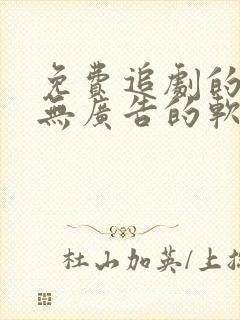 免費追劇的
無廣告的軟
杜山加英/上拉